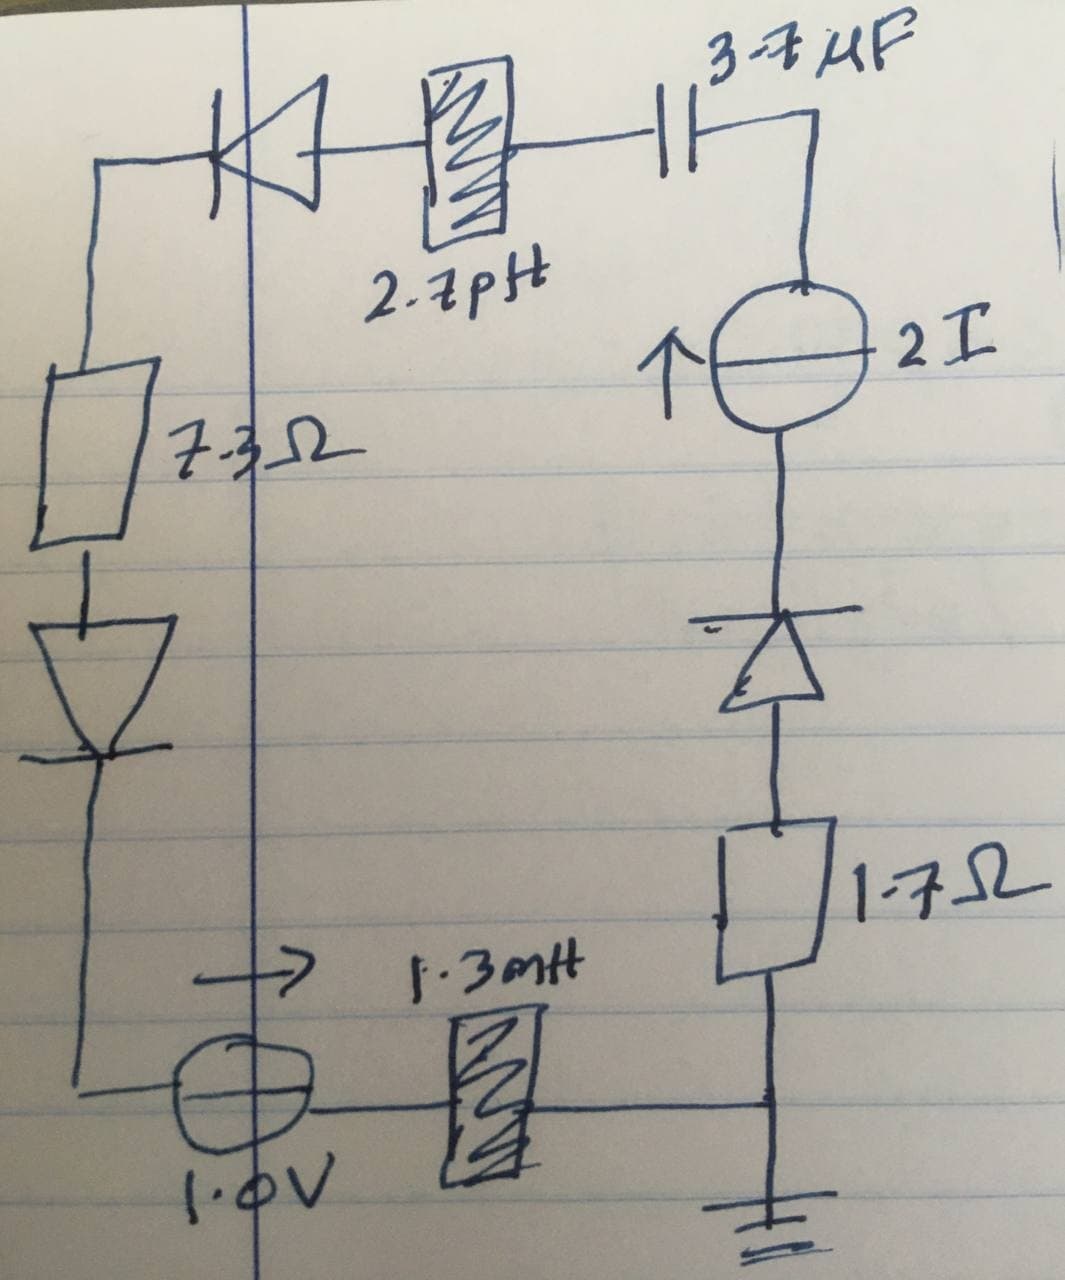 3.7 μF
2.7pH
2 I
7.3 Ω
1.7 Ω
1.3mH
1.0V